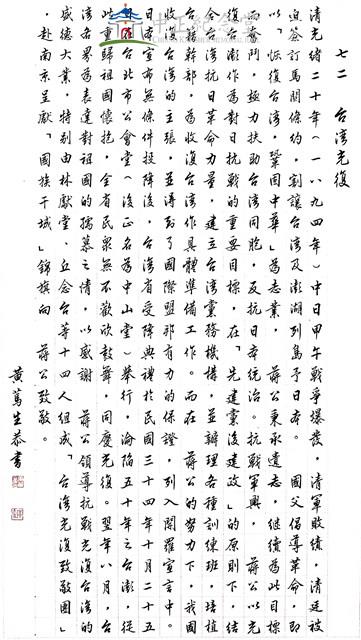 七二　台灣光復
清光緒二十年(一八九四年)中日甲午戰爭爆發,清軍敗績,清廷被
迫簽訂馬關條約,割讓台灣及澎湖列島予日本。　國父倡導革命,即
以「恢復台灣,鞏固中華」為志業,　蔣公秉承遺志,繼續為此目標
而奮鬥,極力扶助台灣同胞,反抗日本統治。抗戰軍興,　蔣公以光
復台澎作為對日抗戰的重要目標,在「先建黨後建政」的原則下,結
合台灣抗日革命力量,建立台灣黨務機構,並辦理各種訓練班,培植
台籍幹部,為收復台灣作具體準備工作。而在　蔣公的努力下,我國
收復台灣的主張,並得到了國際盟邦有力的保證,列入開羅宣言中。
日本宣布無條件投降後,台灣省受降典禮於民國三十四年十月二十五
日在台北市公會堂(後正名為中山堂)舉行,淪陷五十年之台澎,從
此重歸祖國懷抱,全省民眾無不歡欣鼓舞,同慶光復。翌年八月,台
灣各界為表達對祖國的孺慕之情,以感謝　蔣公領導抗戰光復台灣的
盛德大業,特別由林獻堂、丘念台等十四人組成「台灣光復致敬團」
,赴南京呈獻「國族干城」錦旗向　蔣公致敬。
黃篤生恭書